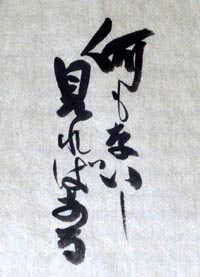 何もない
見ればある